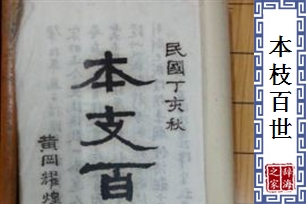 民國丁亥秋
本支百
黄岡耀煌
本枝百世
辞海
之家